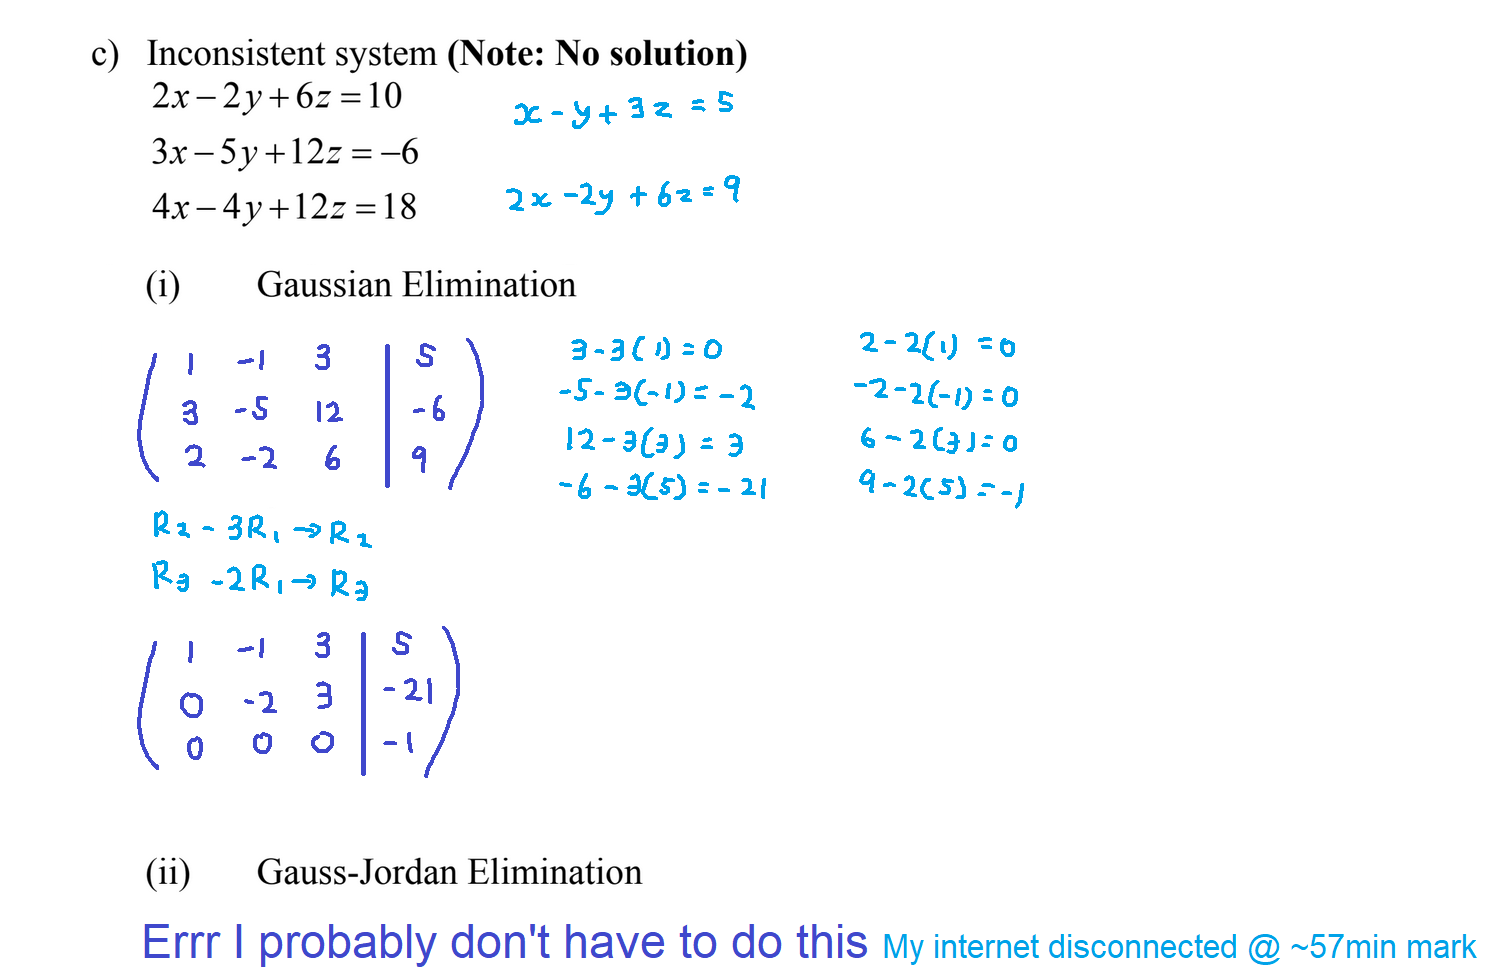 c) Inconsistent system (Note: No solution)
2x − 2y + 6z = 10
x - y + 3z = 5
3x − 5y + 12z = −6
4x − 4y + 12z = 18
2x -2y + 6z = 9
(i) Gaussian Elimination
1 -1 3 | 5
3 -5 12 | -6
2 -2 6 | 9
3-3(1) = 0
-5-3(-1) = -2
12-3(3) = 3
-6-3(5) = -21
2-2(1) = 0
-2-2(-1) = 0
6-2(3) = 0
9-2(5) = -1
R₂ - 3R₁ → R₂
R₃ -2R₁ → R₃
1 -1 3 | 5
0 -2 3 | -21
0 0 0 | -1
(ii) Gauss-Jordan Elimination
Errr I probably don't have to do this My internet disconnected @ ~57min mark